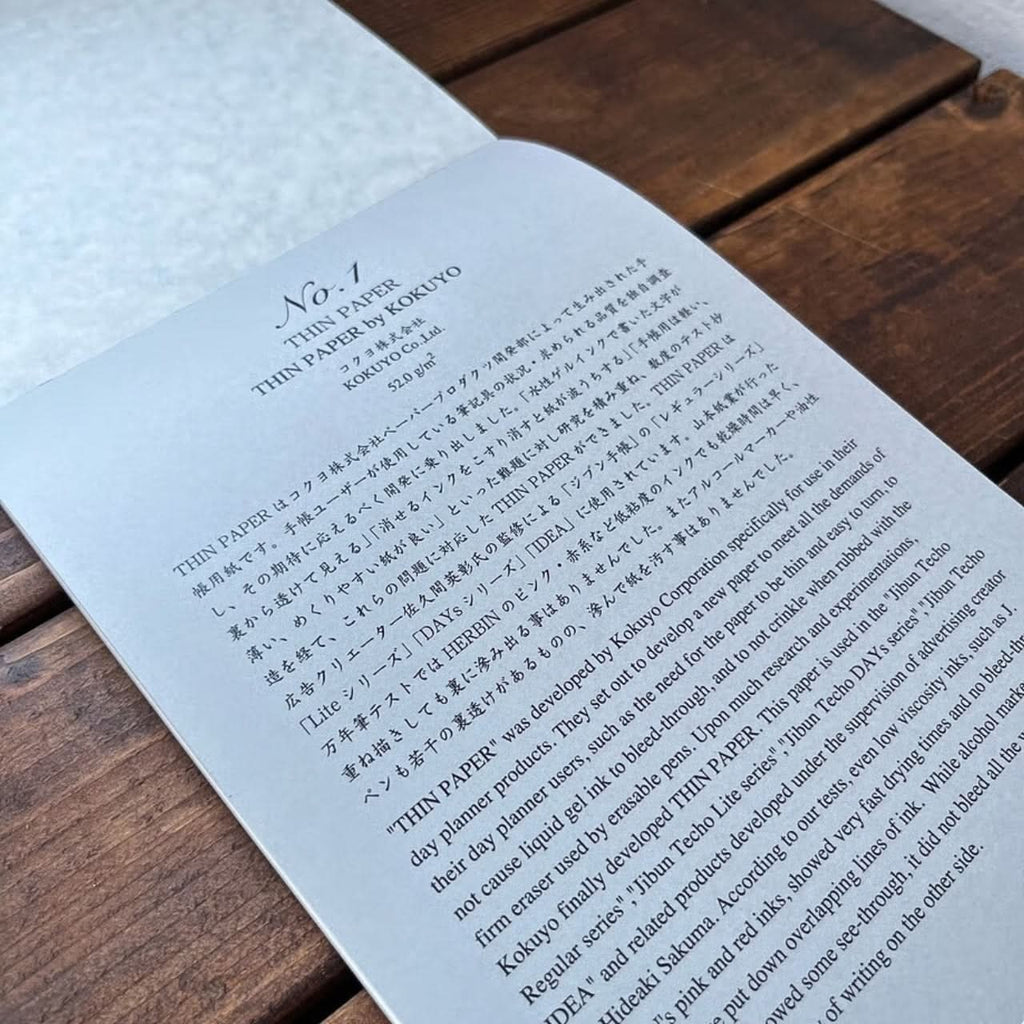 No.1
THIN PAPER
THIN PAPER by KOKUYO
コクヨ株式会社
KOKUYO Co.Ltd.
52.0 g/m²
THIN PAPER はコクヨ株式会社ペーパープロダクツ開発部によって生み出された手
帳用紙です。手帳ユーザーが使用している筆記具の状況・求められる品質を独自調査
し、その期待に応えるべく開発に乗り出しました。「水性ゲルインクで書いた文字が
裏から透けて見える」「消せるインクをこすり消すと紙が波うちする」「手帳用は軽い、
薄い、めくりやすい紙が良い」といった難題に対し研究を積み重ね、数度のテスト抄
造を経て、これらの問題に対応した THIN PAPER ができました。THIN PAPER は
広告クリエーター佐久間英彰氏の監修による「ジブン手帳」の「レギュラーシリーズ」
「Lite シリーズ」「DAYs シリーズ」「IDEA」に使用されています。山本紙業が行った
万年筆テストでは HERBIN のピンク・赤系など低粘度のインクでも乾燥時間は早く、
重ね描きしても裏に滲み出る事はありませんでした。またアルコールマーカーや油性
ペンも若干の裏透けがあるものの、滲んで紙を汚す事はありませんでした。
"THIN PAPER" was developed by Kokuyo Corporation specifically for use in their
day planner products. They set out to develop a new paper to meet all the demands of
their day planner users, such as the need for the paper to be thin and easy to turn, to
not cause liquid gel ink to bleed-through, and to not crinkle when rubbed with the
firm eraser used by erasable pens. Upon much research and experimentations,
Kokuyo finally developed THIN PAPER. This paper is used in the "Jibun Techo
Regular series","Jibun Techo Lite series","Jibun Techo DAYs series","Jibun Techo
IDEA" and related products developed under the supervision of advertising creator
Hideaki Sakuma. According to our tests, even low viscosity inks, such as J.
's pink and red inks, showed very fast drying times and no bleed-
put down overlapping lines of ink. While alcohol
some see-through, it did not bleed all the
of writing on the other side.